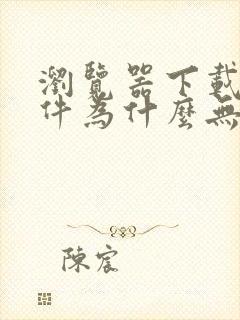 瀏覽器下載
件為什麼無
陳宸